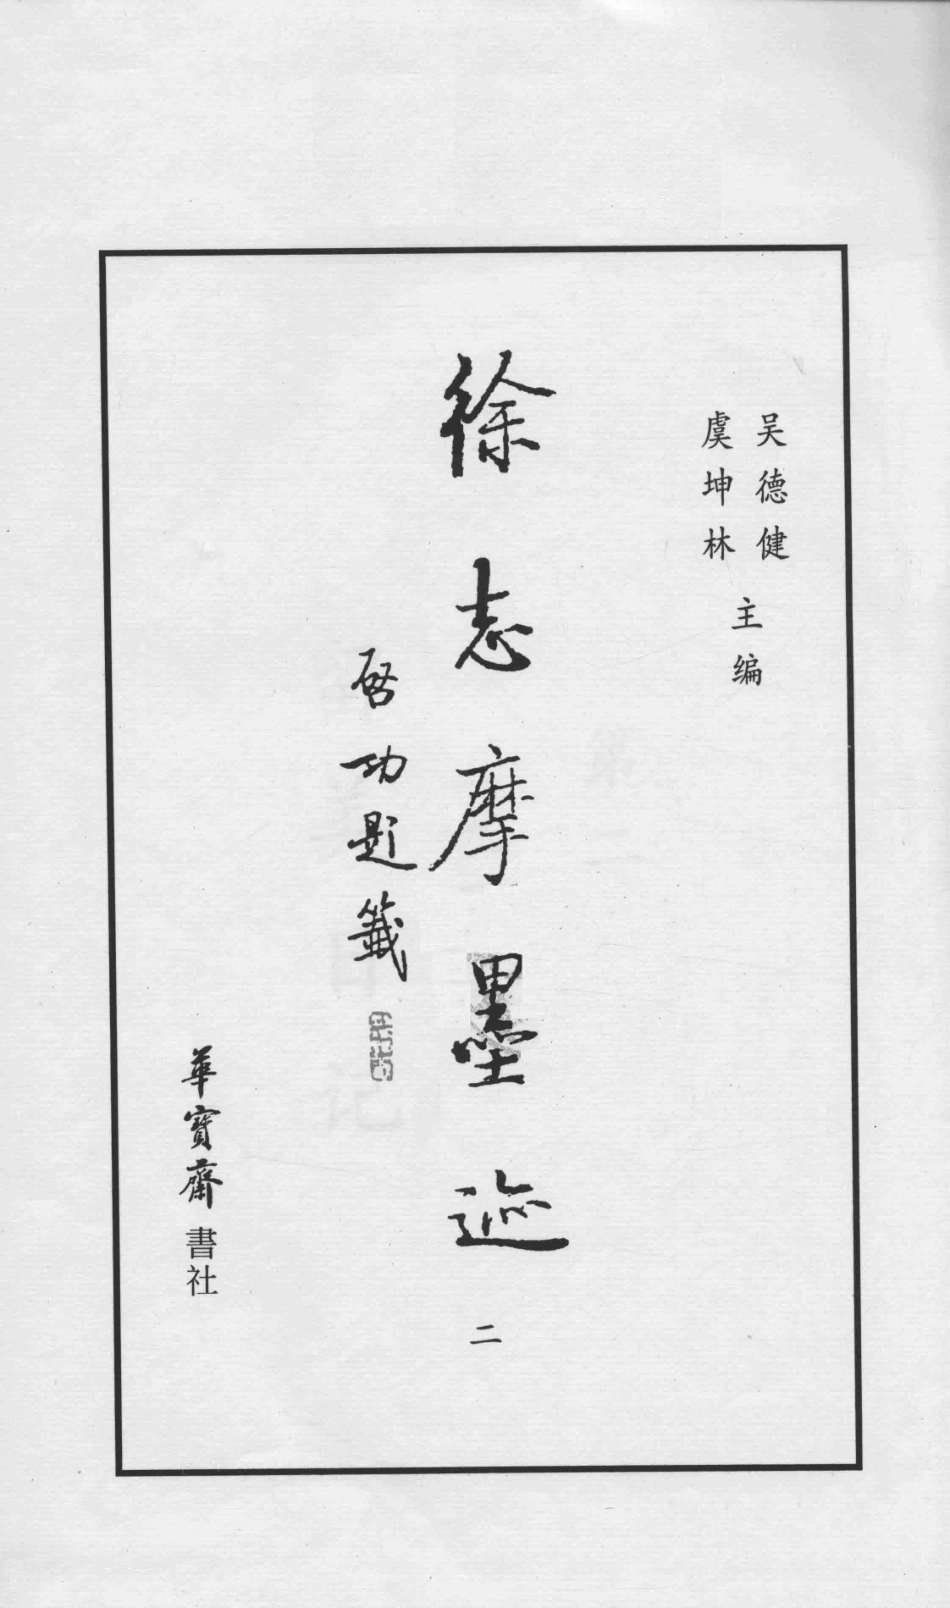 吴德健
虞坤林
主编
徐志摩墨迹
二
启功题籤
華寶齋書社